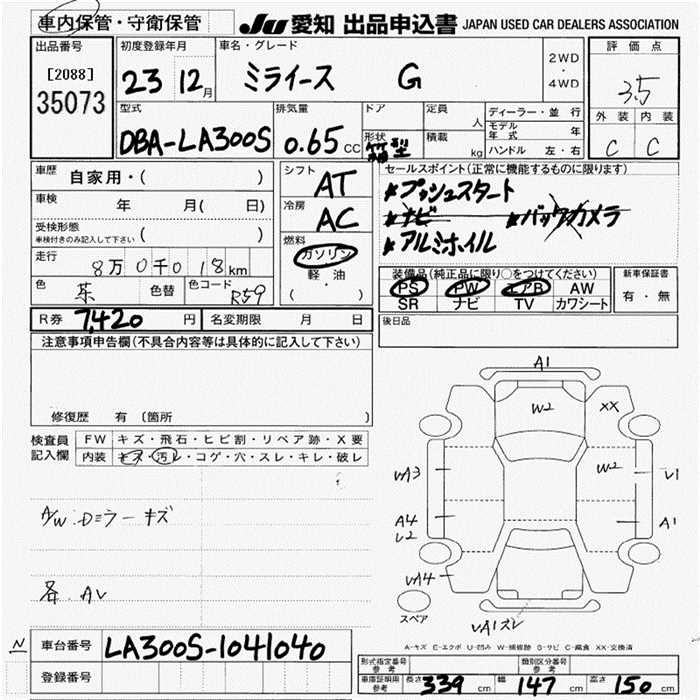 車内保管・守衛保管 JU 愛知 出品申込書 JAPAN USED CAR DEALERS ASSOCIATION
出品番号 [2088] 35073
初度登録年月 23 12月
車名・グレード ミライース G
2WD・4WD
評価点 3.5
外装 内装
C C
型式 DBA-LA300S
排気量 0.65 CC
ドア 形状 箱型
定員 人
積載 kg
ディーラー・並行
モデル年式 年
ハンドル 左・右
車歴 自家用・( )
車検 年 月( 日)
受検形態 ( )
車検付きのみ記入して下さい
走行 8万0千018km
色 茶 色替 色コード R59
シフト AT
冷房 AC
燃料 ガソリン
軽・油
( )
セールスポイント(正常に機能するものに限ります)
★プッシュスタート
★ナビ ★バックカメラ
★アルミホイル
装備品(純正品に限り○をつけてください)
PS PW エアB AW
SR ナビ TV カワシート
新車保証書
有・無
R券 7,420 円 名変期限 月 日
後日品
注意事項申告欄(不具合内容等は具体的に記入して下さい)
修復歴 有 〔箇所 〕
検査員記入欄
FW キズ・飛石・ヒビ割・リペア跡・X要
内装 キズ・汚レ・コゲ・穴・スレ・キレ・破レ
A/W:Dミラーキズ
各AV
A1
W2 XX
UA3 W2 U1
A4 A1
U2
UA4
スペア
UA1スレ
A-キズ E-エクボ U-凹み W-補修跡 S-サビ C-腐食 XX-交換済
N 車台番号 LA300S-1041040
登録番号
形式指定番号 参考
類別区分番号 参考
車庫証明用 参考 長さ 339 cm 幅 147 cm 高さ 150 cm